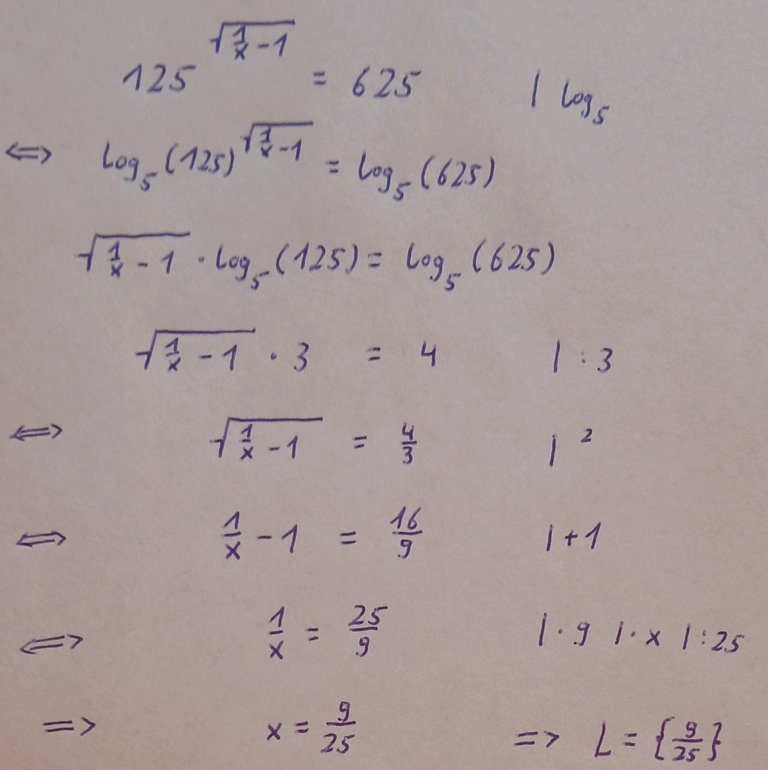 125^√(1/x - 1) = 625 | log₅
⟺ log₅(125)^√(1/x - 1) = log₅(625)
√(1/x - 1) · log₅(125) = log₅(625)
√(1/x - 1) · 3 = 4 | : 3
⟺ √(1/x - 1) = 4/3 | ²
⟺ 1/x - 1 = 16/9 | + 1
⟺ 1/x = 25/9 | · 9 | · x | : 25
=> x = 9/25 => L = {9/25}